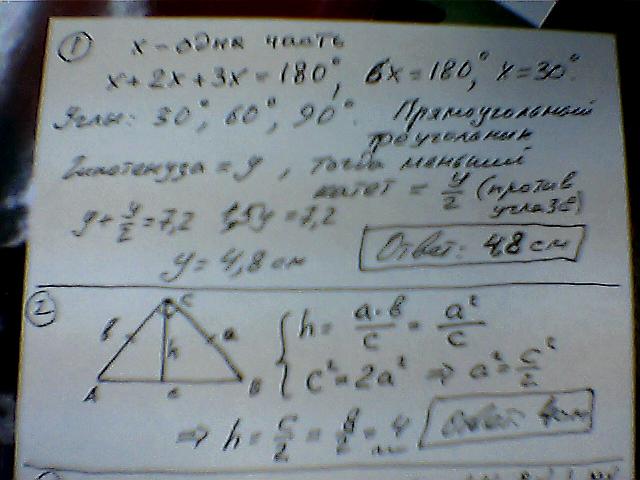 ① x - одна часть
x + 2x + 3x = 180°, 6x = 180°, x = 30°.
Углы: 30°, 60°, 90°. Прямоугольный
треугольник
Гипотенуза = y, тогда меньший
катет = y/2 (против
угла 30°)
y + y/2 = 7,2 1,5y = 7,2
y = 4,8 см
Ответ: 4,8 см
②
C
b h a
A c B
h = a·b/c = a²/c
c² = 2a² ⇒ a² = c²/2
⇒ h = c/2 = 8/2 = 4 см
Ответ: 4 см